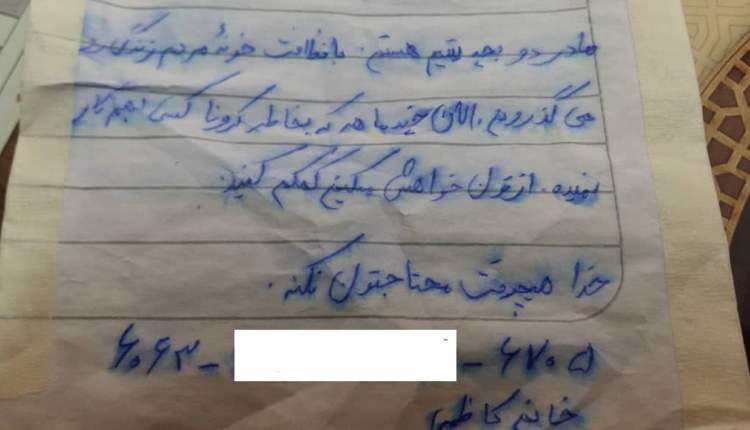 مادر دو بچه یتیم هستم. با نظافت خونهٔ مردم زندگی رو
می گذرونم. الان چند ماهه که بخاطر کرونا کسی بهم کار
نمیده. ازتون خواهش میکنم کمکم کنید.
خدا هیچوقت محتاجتون نکنه.
۶۰۶۳ - - ۶۷۰۵
خانم کاظمی